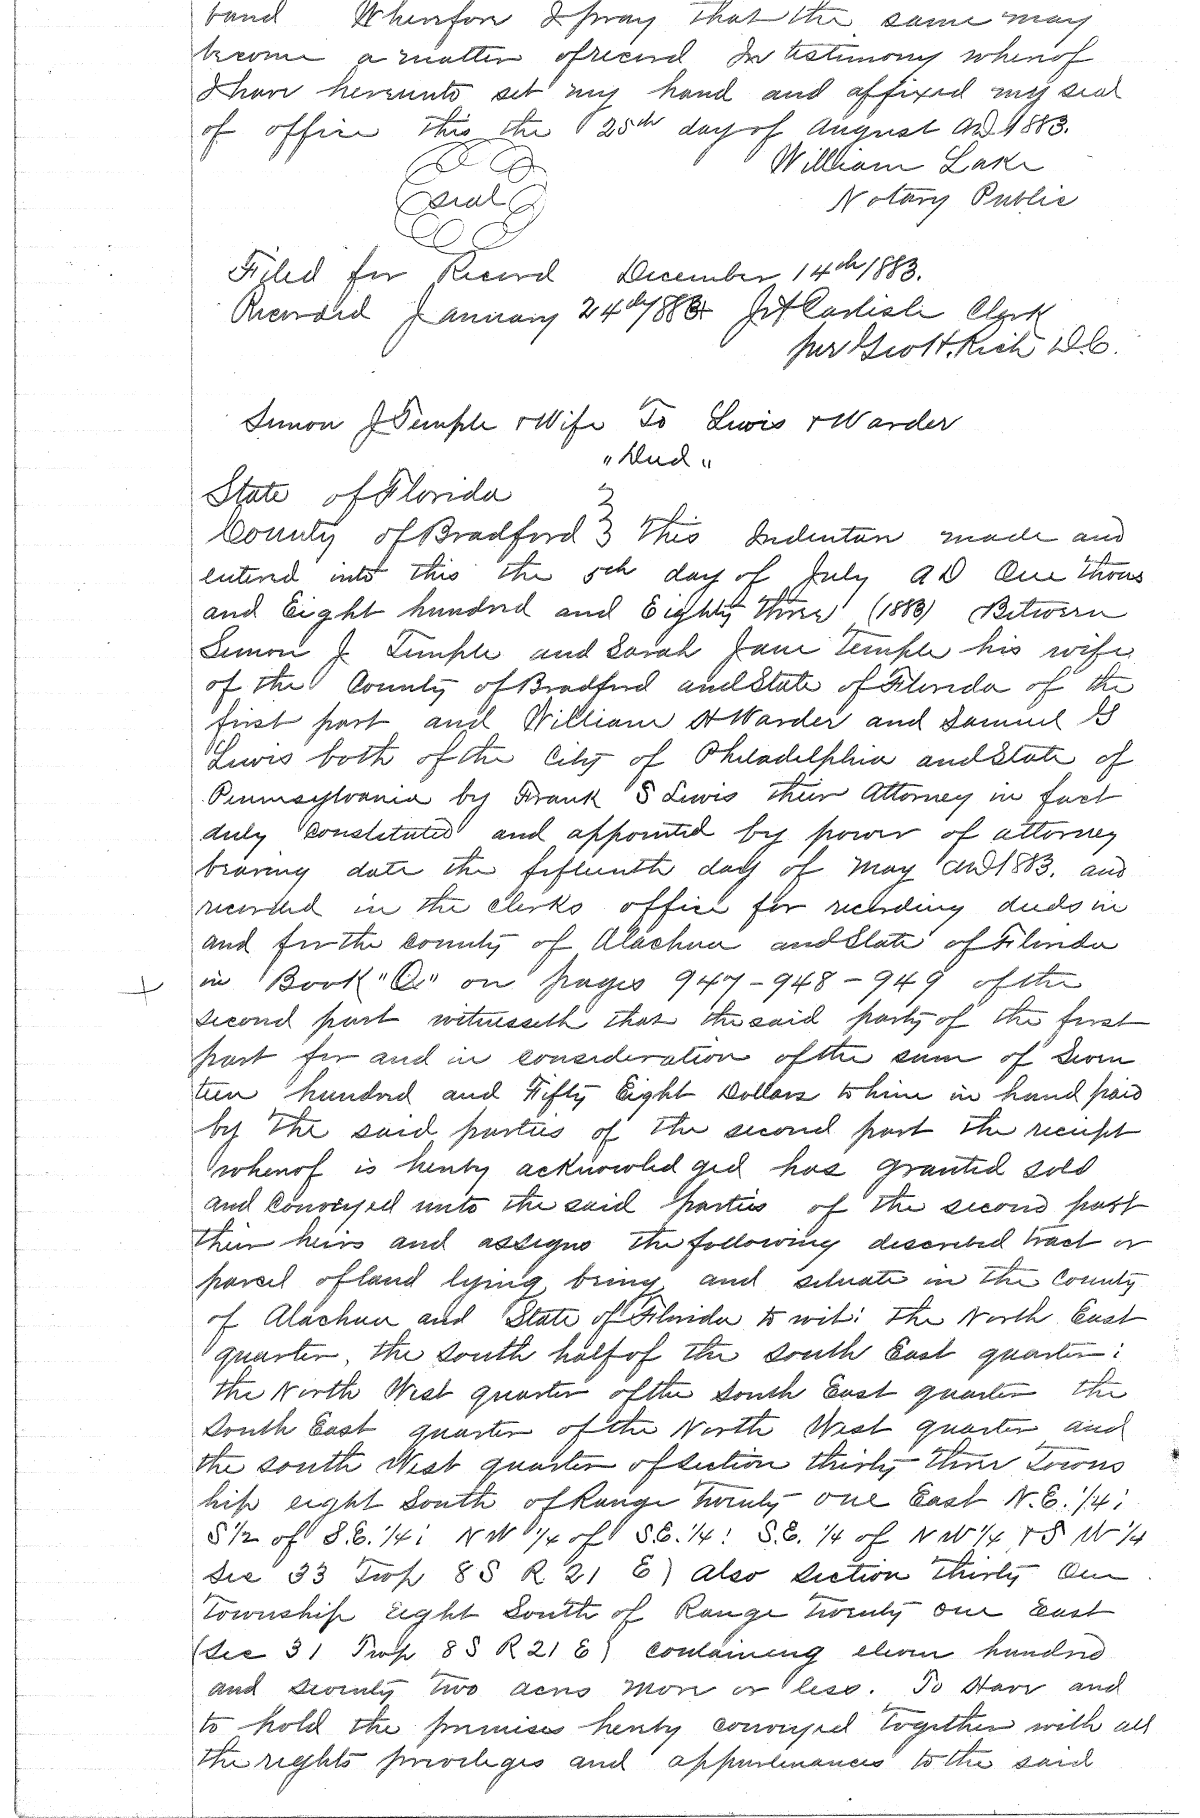 band Wherefore I pray that the same may
become a matter of record In testimony whereof
I have hereunto set my hand and affixed my seal
of office this the 25th day of August AD 1883.
William Lake
seal
Notary Public
Filed for Record December 14th 1883.
Recorded January 24th/1884 J A Carlisle Clerk
per Geo H. Rich D.C.
Simon J Temple & Wife To Lewis & Warder
"Deed"
State of Florida }
County of Bradford } This Indenture made and
entered into this the 5th day of July AD One thous
and Eight hundred and Eighty three (1883) Between
Simon J Temple and Sarah Jane Temple his wife
of the County of Bradford and State of Florida of the
first part and William H Warder and Samuel G
Lewis both of the City of Philadelphia and State of
Pennsylvania by Frank S Lewis their Attorney in fact
duly constituted and appointed by power of attorney
bearing date the fifteenth day of May AD 1883. and
recorded in the clerks office for recording deeds in
and for the county of Alachua and State of Florida
+ in Book "Q" on pages 947-948-949 of the
second part witnesseth that the said party of the first
part for and in consideration of the sum of Seven
teen hundred and Fifty Eight Dollars to him in hand paid
by the said parties of the second part the receipt
whereof is hereby acknowledged has granted sold
and conveyed unto the said parties of the second part
their heirs and assigns the following described tract or
parcel of land lying being and situate in the County
of Alachua and State of Florida to wit: the North East
quarter, the south half of the south East quarter:
the North West quarter of the South East quarter the
South East quarter of the North West quarter and
the south West quarter of section thirty three Towns
hip eight South of Range Twenty one East N.E. 1/4:
S 1/2 of S.E. 1/4: NW 1/4 of S.E. 1/4: S.E. 1/4 of NW 1/4 & S W 1/4
Sec 33 Twp 8 S R 21 E) Also section Thirty One
Township Eight South of Range Twenty one East
(Sec 31 Twp 8 S R 21 E) containing eleven hundred
and seventy two acres more or less. To Have and
to hold the premises hereby conveyed together with all
the rights privileges and appurtenances to the said